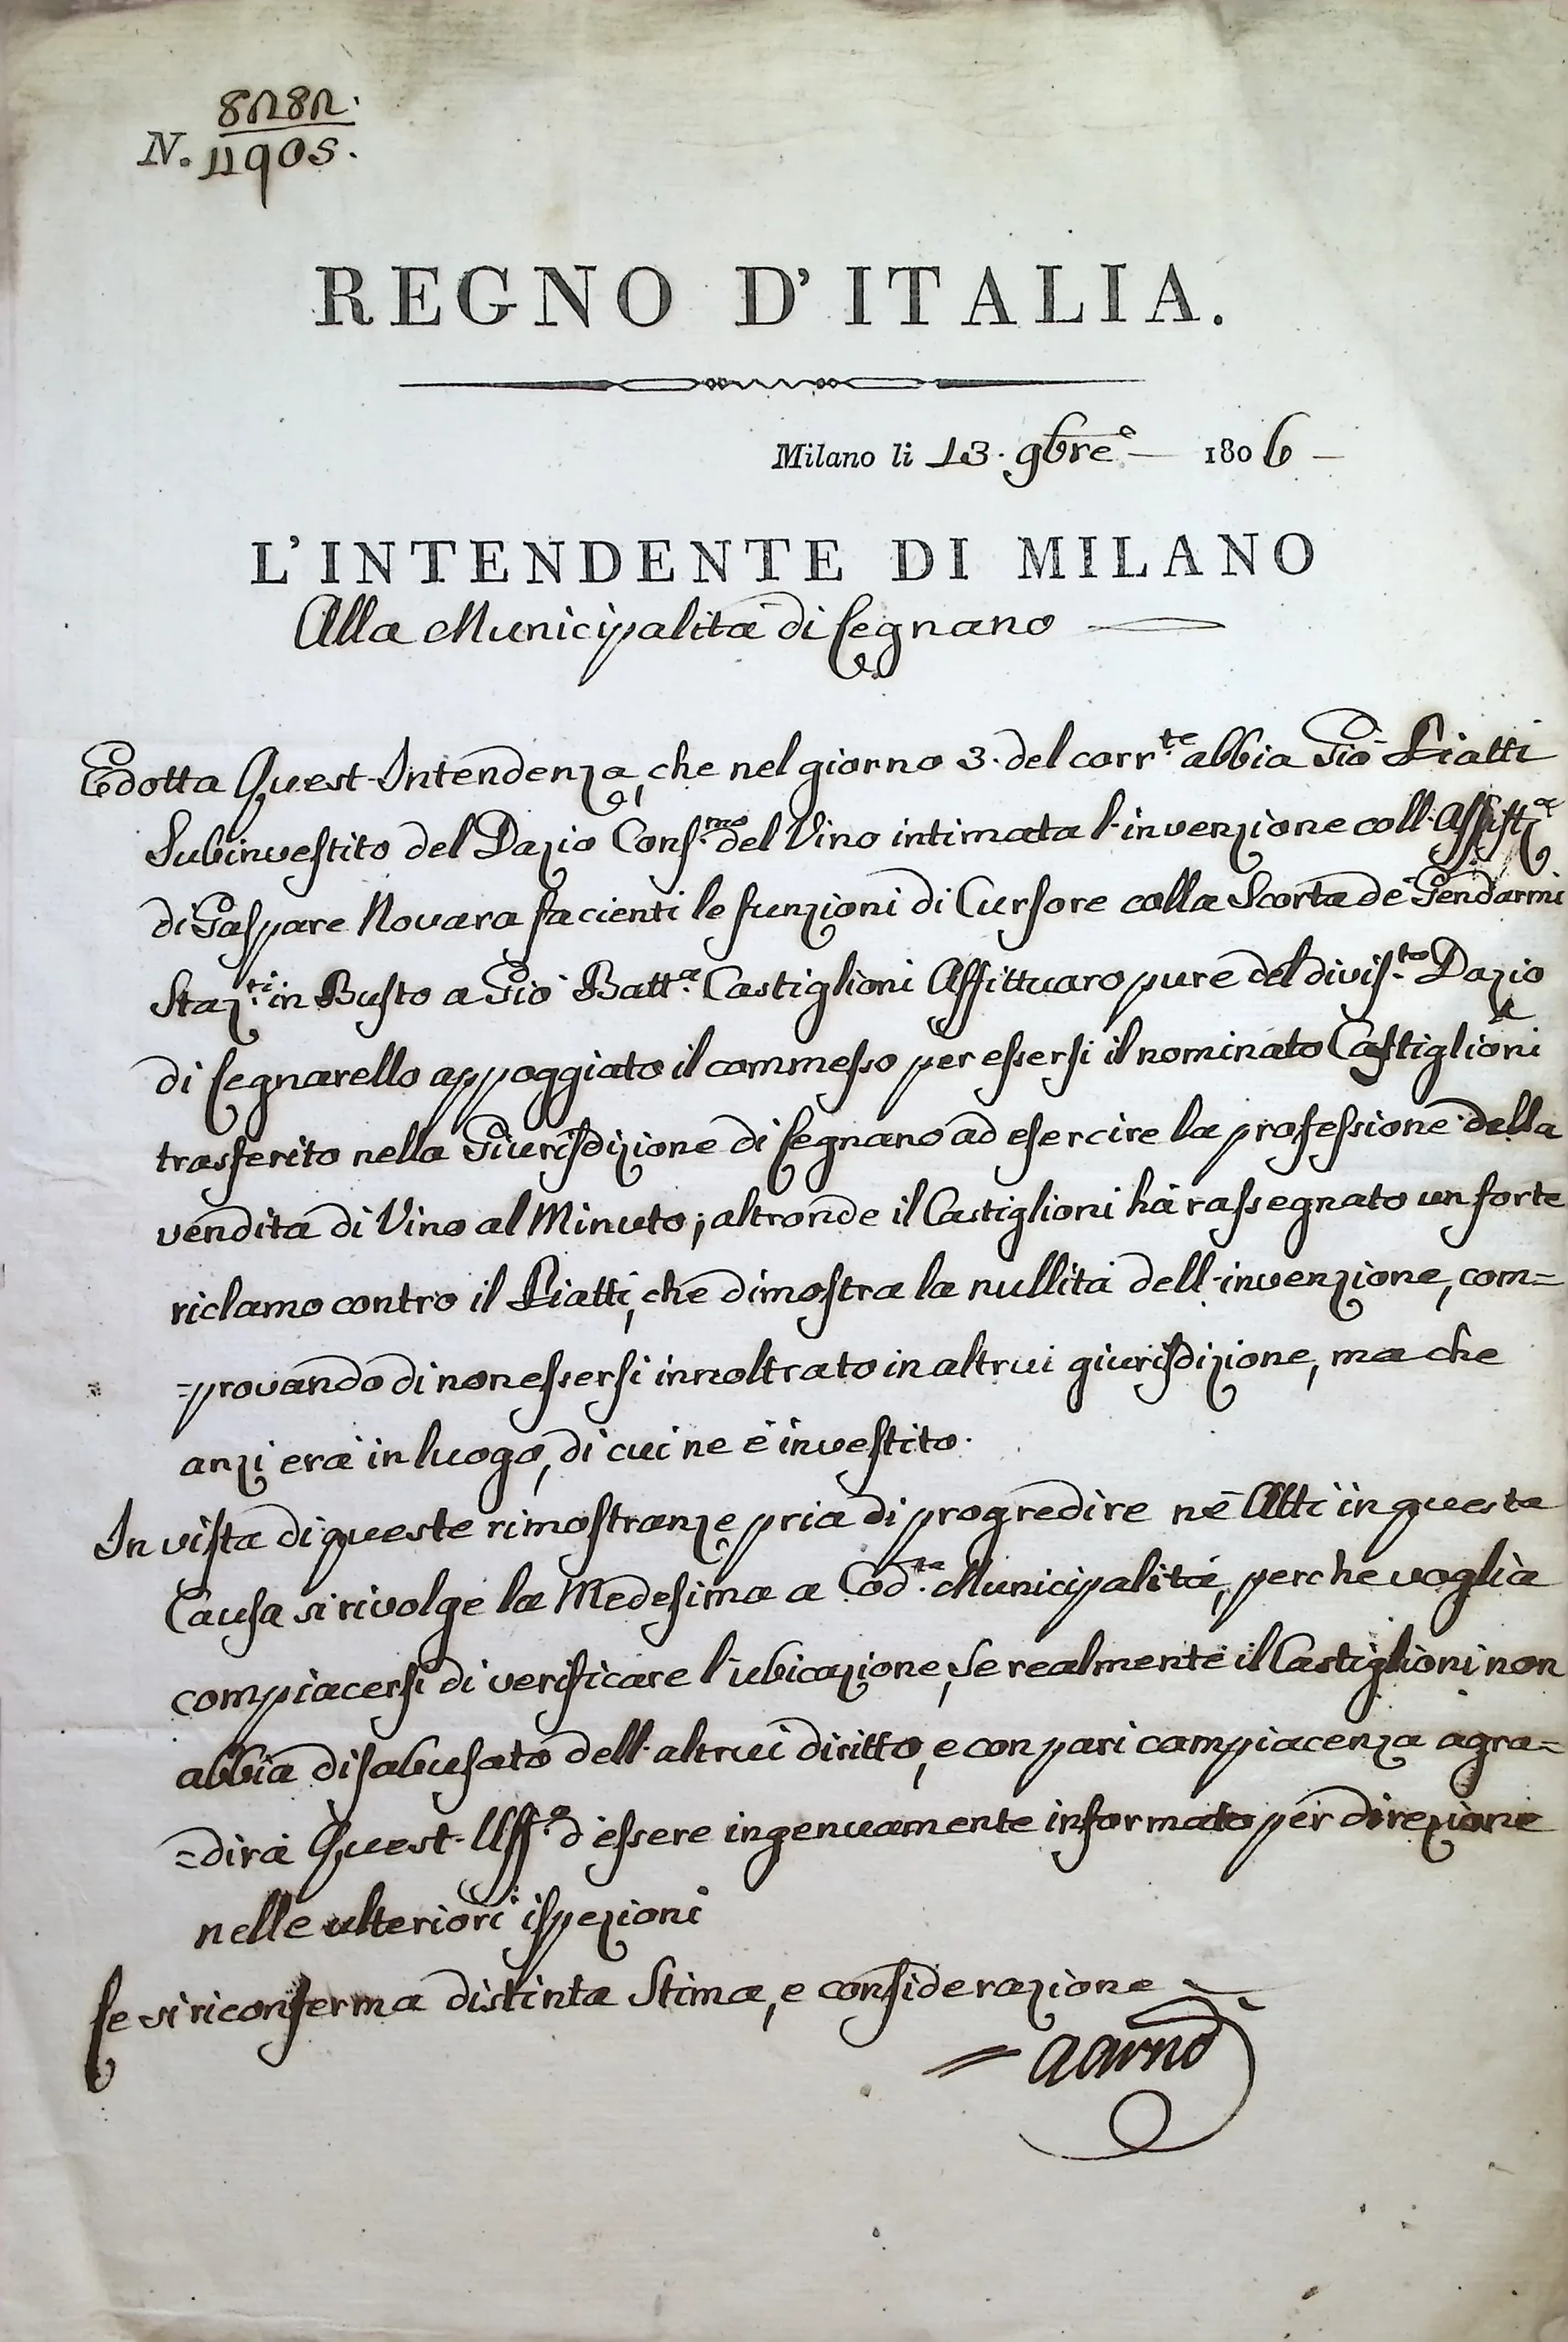 8282.
N. 11905.
REGNO D'ITALIA.
Milano li 13. 9bre 1806
L'INTENDENTE DI MILANO
Alla Municipalità di Legnano
Edotta Quest'Intendenza, che nel giorno 3. del corr.te abbia Gio Piatti
Subinvestito del Dazio Cons.mo del Vino intimata l'invenzione coll'Assist.za
di Gaspare Novara facienti le funzioni di Cursore colla Scorta de Gendarmi
Staz.ti in Busto a Gio Batt.a Castiglioni Affittuaro pure del divis.to Dazio
di Legnarello appoggiato il commesso per essersi il nominato Castiglioni
trasferito nella Giurisdizione di Legnano ad esercire la professione della
vendita di Vino al Minuto; altronde il Castiglioni hà rassegnato un forte
riclamo contro il Piatti, che dimostra la nullità dell'invenzione, com=
=provando di non essersi innoltrato in altrui giurisdizione, ma che
anzi era in luogo, di cui ne è investito.
In vista di queste rimostranze pria di progredire né Atti in questa
Causa si rivolge la Medesima a Cod.ta Municipalità, perche voglia
compiacersi di verificare l'ubicazione, se realmente il Castiglioni non
abbia disabusato dell'altrui diritto, e con pari compiacenza agra=
=dirà Quest'Uff.o d'essere ingenuamente informato per direzione
nelle ulteriori ispezioni
Le si riconferma distinta Stima, e considerazione